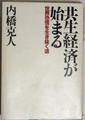 共生経済が
始まる
世界恐慌を生き抜く道
内橋克人